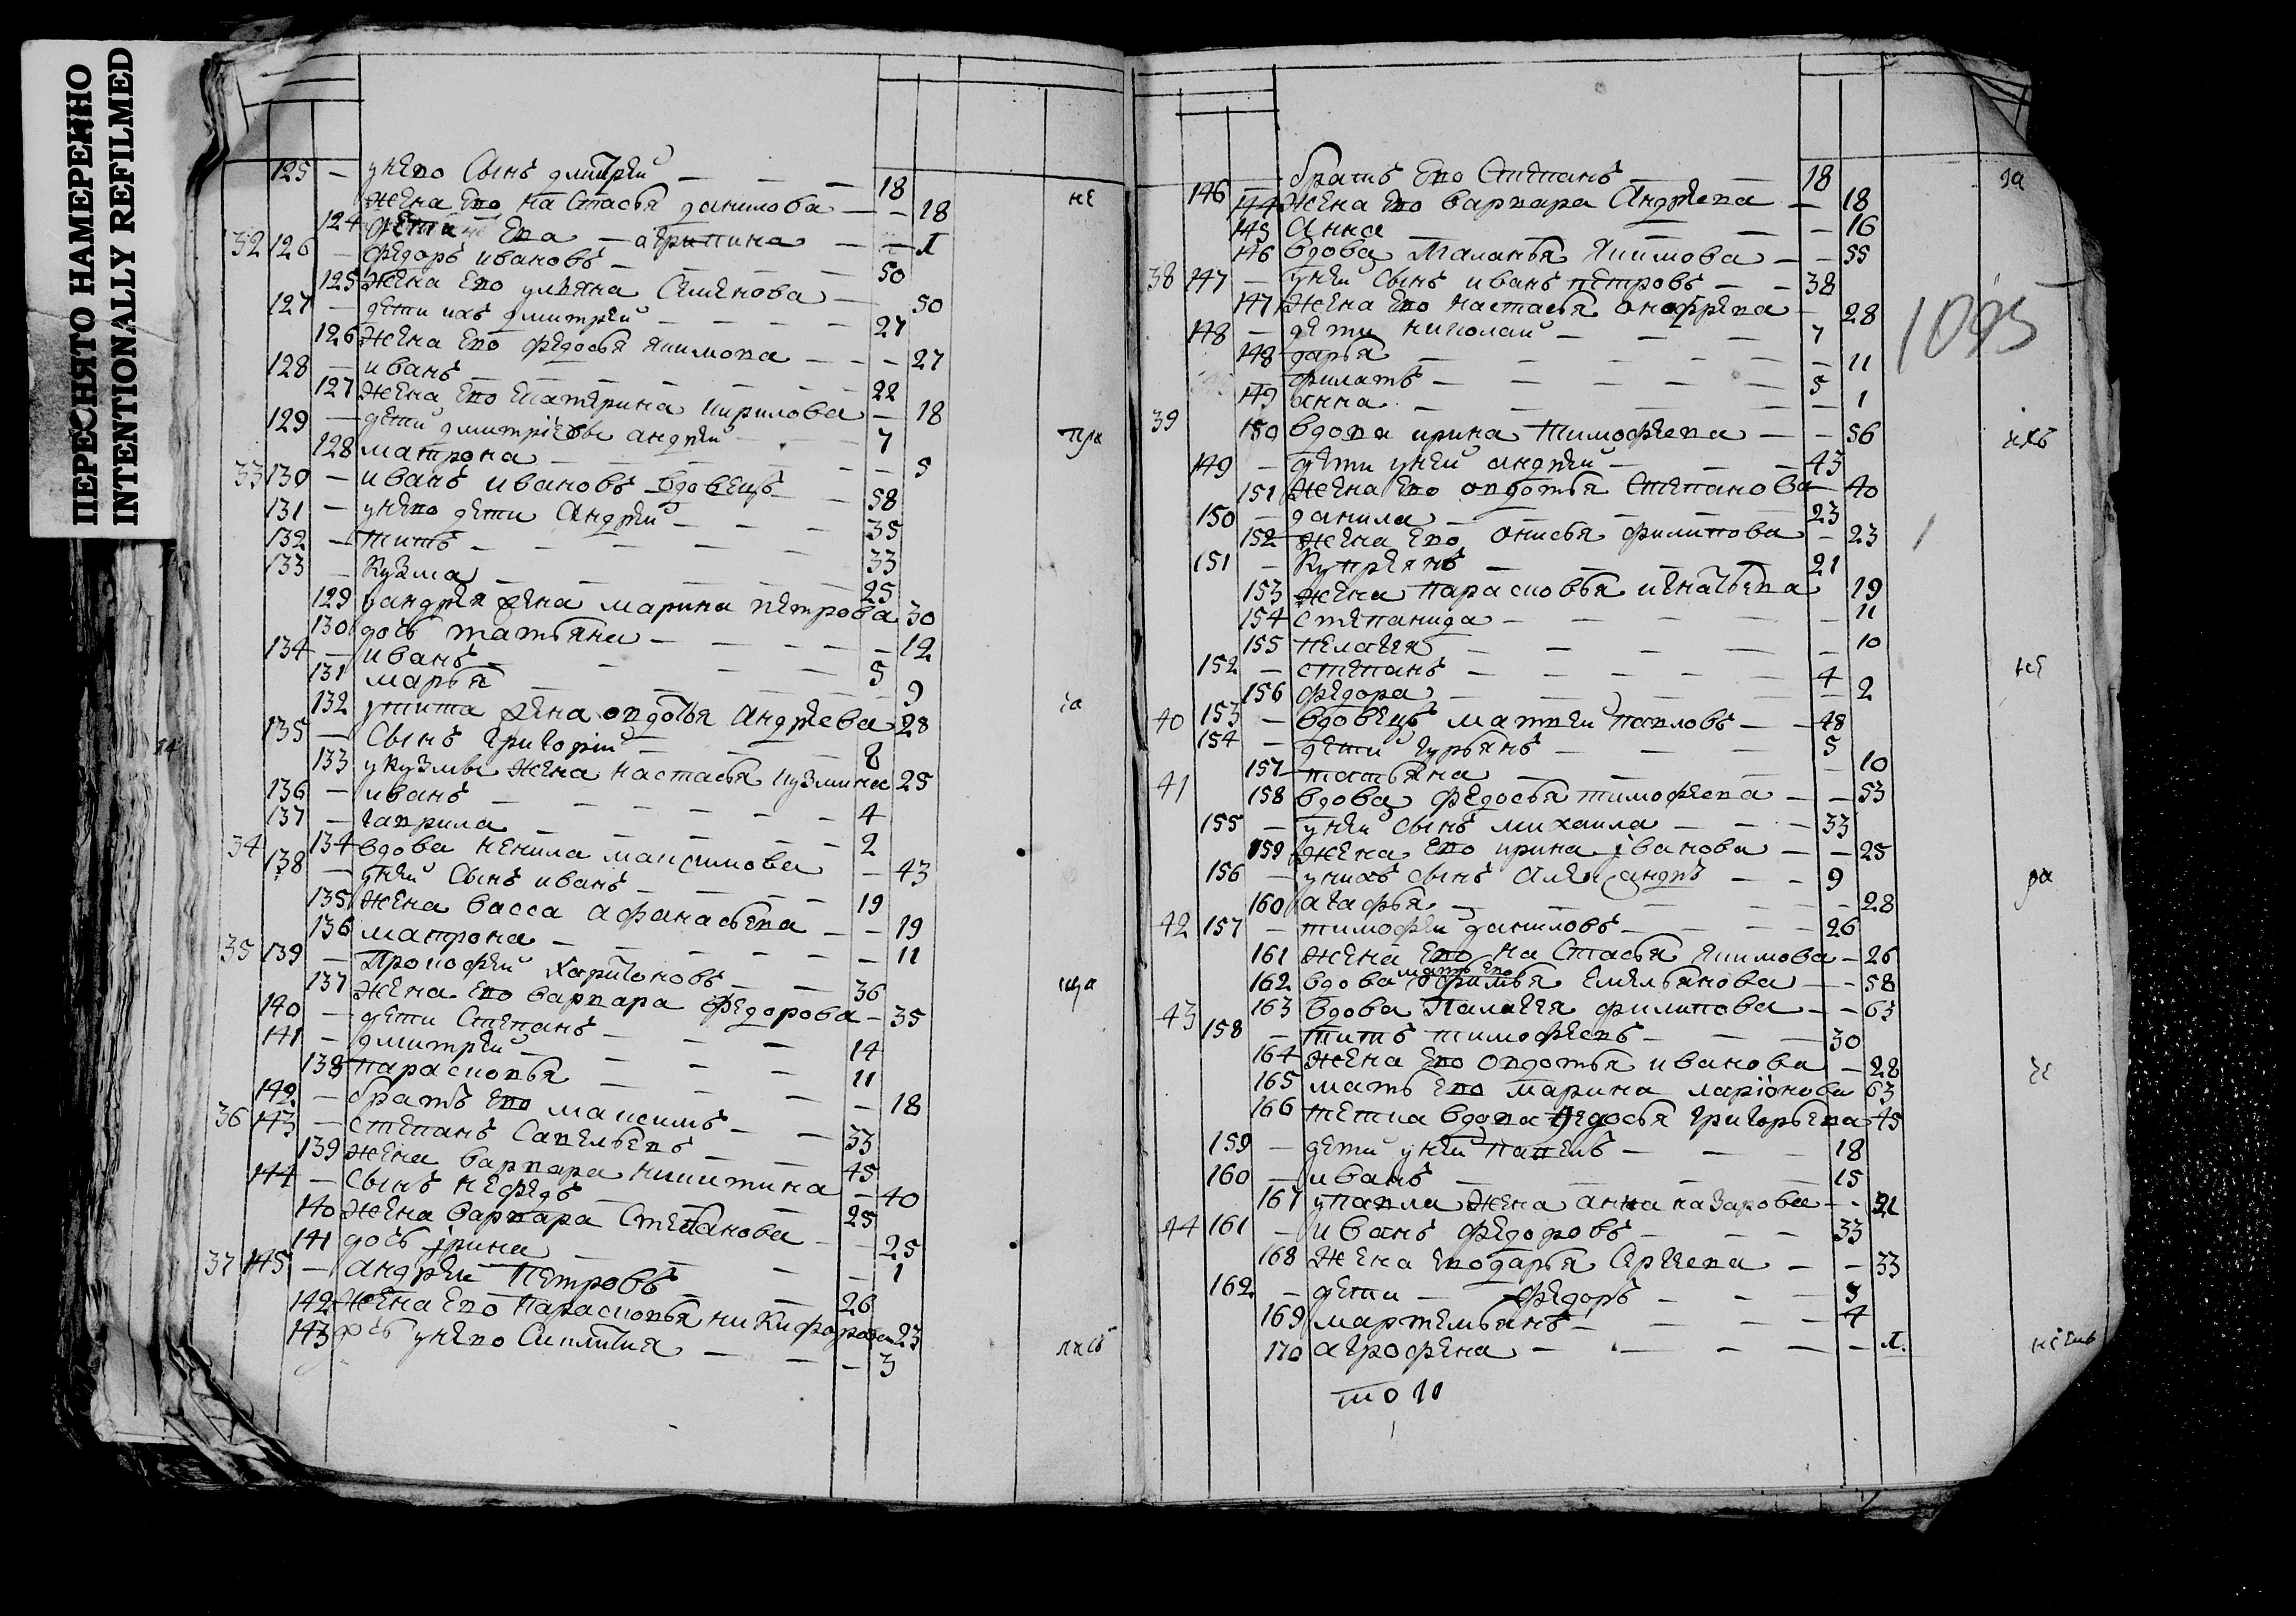 ПЕРЕСНЯТО НАМЕРЕННО
INTENTIONALLY REFILMED
125 — унево Сынъ дмитрей — — — 18
жена Ево настасья данилова — — 18
124 дети Ева — агрипина — — 1
32 126 — федоръ ивановъ — — — 50
125 жена Ево ульяна Семенова — 50
127 — дети ихъ дмитрей — — — 27
126 жена Ево федосья якимова — — — 27
128 — иванъ — — — 22
127 жена Ево екатерина кирилова — 18
129 — дети дмитріевы андрей — — 7
пра
128 матрона — — — 5
33 130 — иванъ ивановъ вдовецъ — 58
131 — унево дети Андрей — — — 35
132 — титъ — — — 33
133 — кузма — — — 25
129 уандрея жена марина петрова 30
130 дочь татьяна — — — 12
134 — иванъ — — — 5
131 марья — — — 9
132 утита жена овдотья Андреева 28
135 — Сынъ григорій — — — 8
133 укузмы жена настасья кузмина 25
136 — иванъ — — — 4
137 — гаврила — — — 2
34 134 вдова ненила максимова — 43
138 — уней Сынъ иванъ — — — 19
135 жена васса афанасьева — — 19
136 матрона — — — 11
35 139 — Прокофей харитоновъ — — 36
137 жена Ево варвара федорова — 35
140 — дети Степанъ — — — 14
141 — дмитрей — — — 11
138 парасковья — — — 18
142 — братъ Ево максимъ — — 33
36 143 — степанъ Савельевъ — — 45
139 жена варвара никитина — 40
144 — Сынъ нефедъ — — — 25
140 жена варвара Степанова — — 25
141 дочь јрина — — — 1
37 145 — андрей Петровъ — — 26
142 жена Ево парасковья никифорова 23
143 дочь унево Сиклитія — — — 3
— братъ Ево Степанъ — — 18
146 144 жена Ево варвара Андреева — 18
145 Анна — — — 16
146 вдова Маланья якимова — — 55
38 147 — уней Сынъ иванъ петровъ — — 38
147 жена Ево настасья онофреева — 28
1095
148 — дети николай — — — 7
148 дарья — — — 11
— филатъ — — — 5
149 анна — — — 1
39 150 вдова ирина тимофеева — — 56
149 — дети уней андрей — — 43
151 жена Ево овдотья Степанова — 40
150 — данила — — — 23
152 жена Ево онисья филипова — 23
151 — купреянъ — — — 21
153 жена парасковья игнатьева 19
154 степанида — — — 11
155 пелагея — — — 10
152 — степанъ — — — 4
156 федора — — — 2
40 153 — вдовецъ матвей павловъ — — 48
154 — дети гурьянъ — — — 5
157 татьяна — — — 10
41 158 вдова федосья тимофеева — — 53
155 — уней сынъ михаила — — — 33
159 жена Ево ирина јванова — — 25
156 — унихъ сынъ Александръ — — 9
160 агафья — — — 28
42 157 — тимофей даниловъ — — — 26
161 жена Ево настасья якимова — 26
мать Ево
162 вдова офимья Емельянова — — 58
43 163 вдова Палагея филипова — — 63
158 — титъ тимофеевъ — — — 30
164 жена Ево овдотья иванова — 28
165 мать Ево марина ларіонова 63
166 тетка вдова федосья григорьева 45
159 — дети уней павелъ — — — 18
160 — иванъ — — — 15
167 упавла жена анна назарова — — 21
44 161 — иванъ федоровъ — — — 33
168 жена Ево дарья Сергеева — — 33
162 — дети — федоръ — — — 9
169 мартемьянъ — — — 4
170 аграфена — — — 1